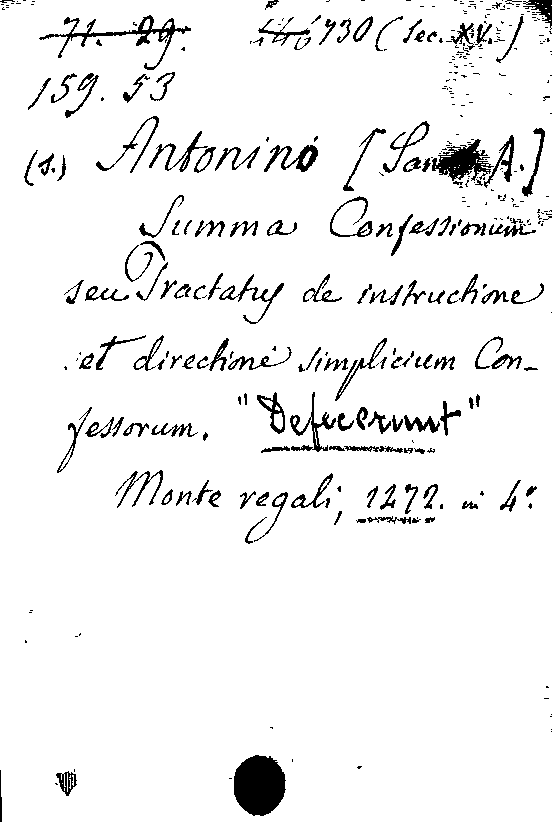 71. 29. 730 (Sec. XV.)
159. 53
(S.) Antonino [San A.]
Summa Confessionum
seu Tractatus de instructione
et directione simplicium Con-
fessorum. "Defecerunt"
Monte regali, 1272. in 4º.